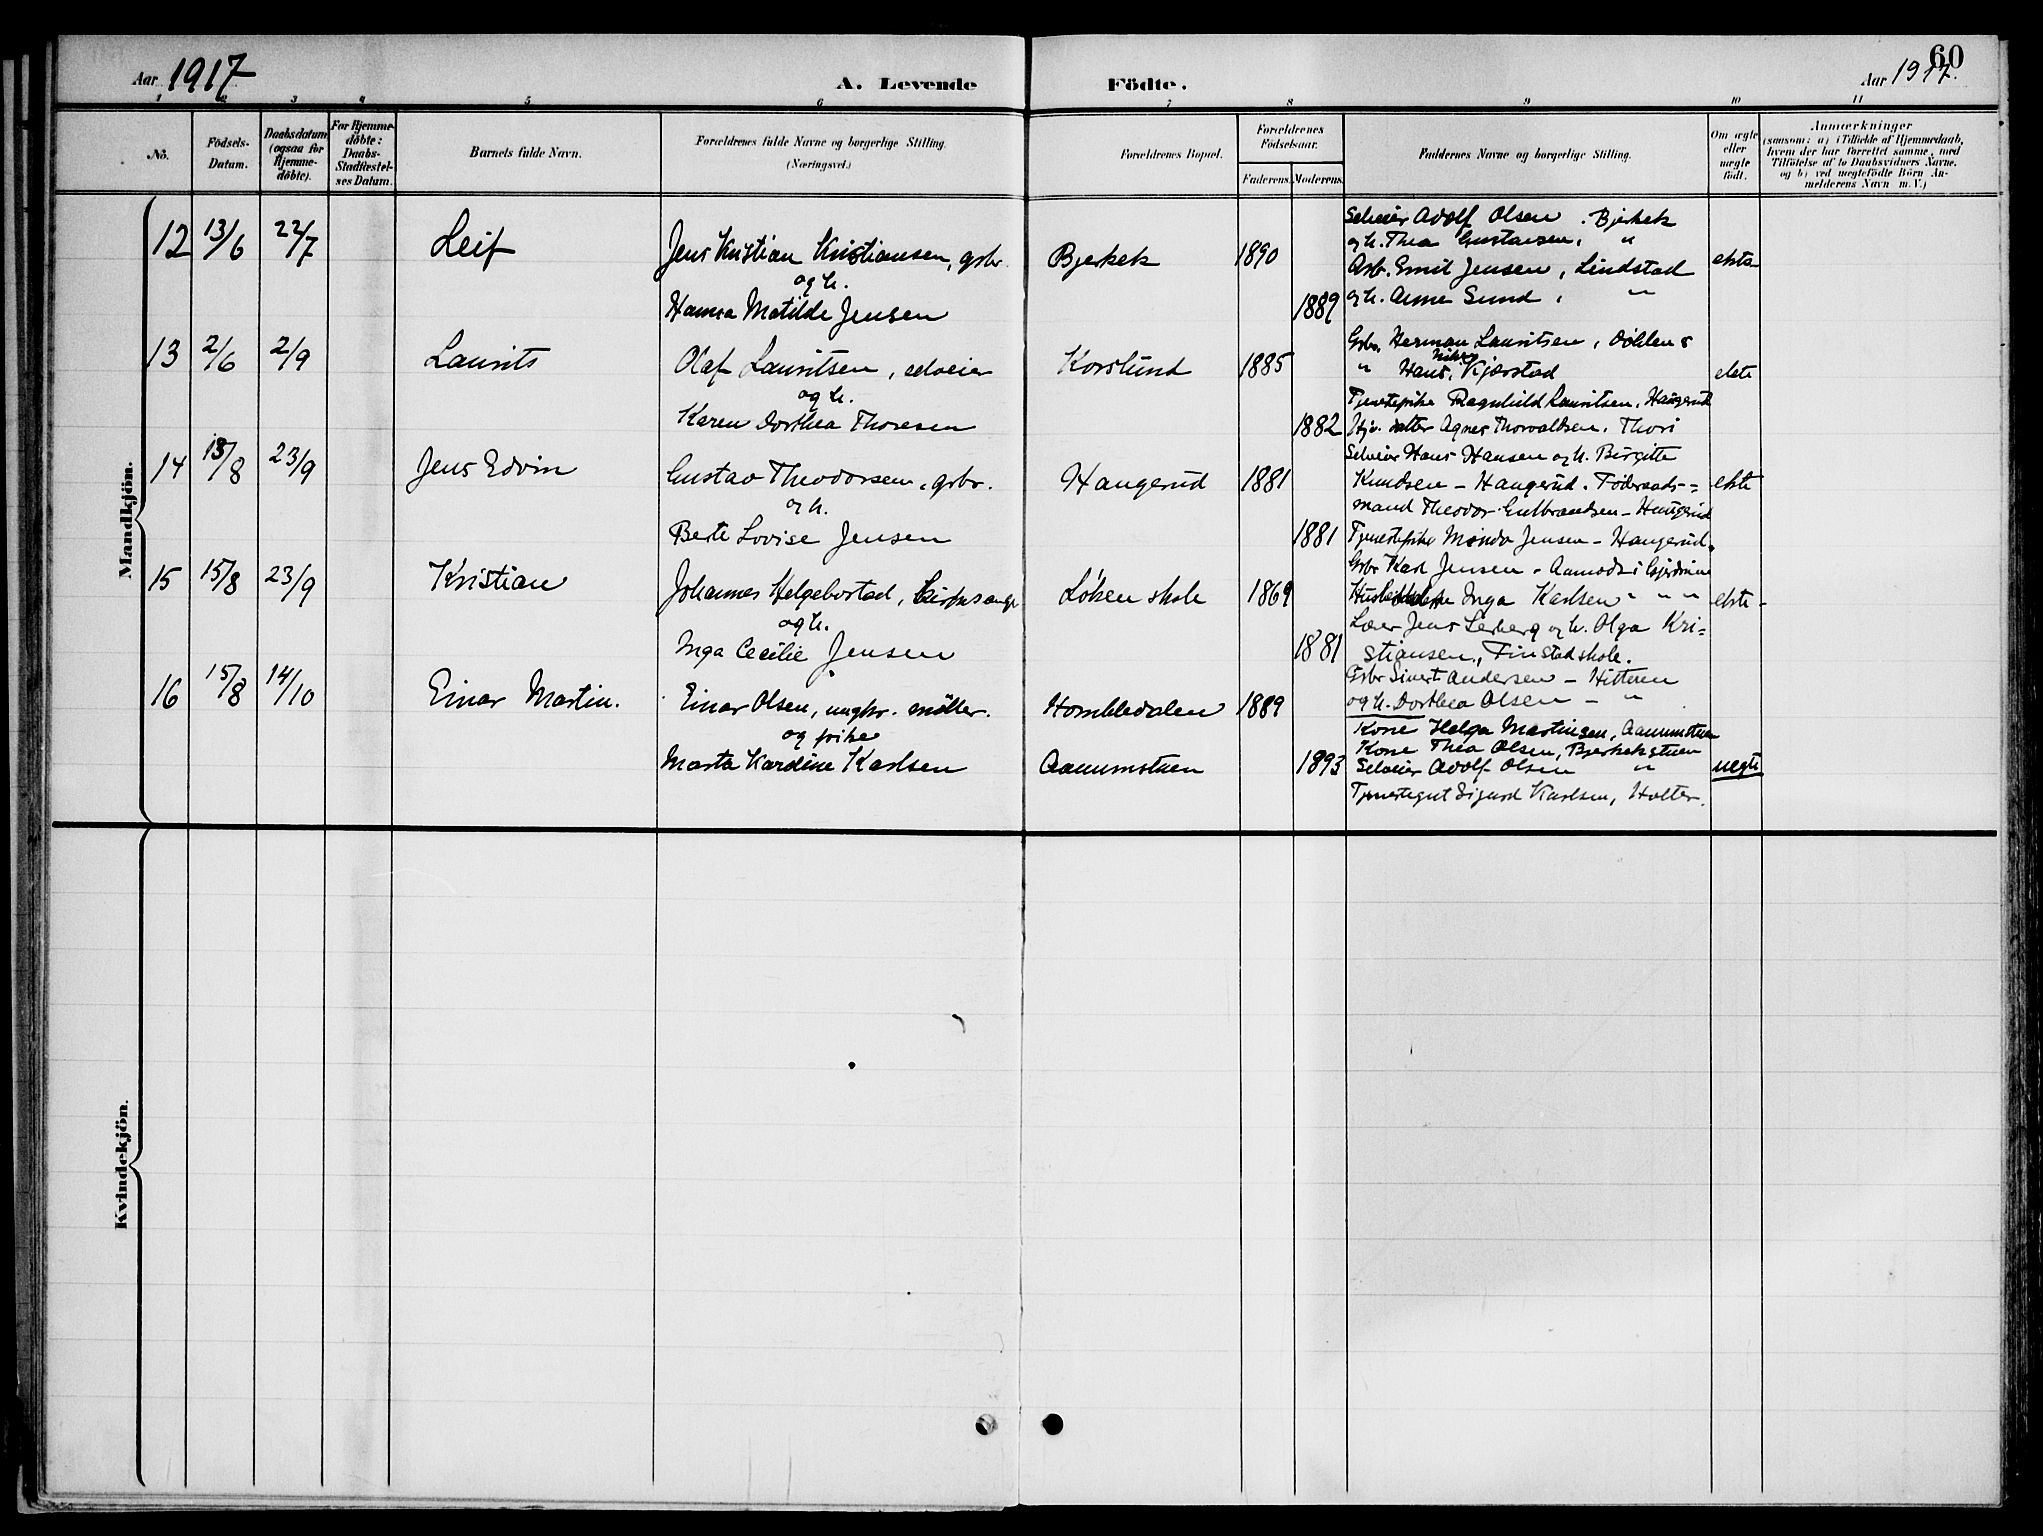 60
Aar 1917
A. Levende Födte.
Aar 1917.
1 2 3 4 5 6 7 8 9 10 11
No.
Födsels-Datum.
Daabsdatum (ogsaa for Hjemme-döbte).
For Hjemme-döbte: Daabs-Stadfæstel-ses Datum.
Barnets fulde Navn.
Forældrenes fulde Navne og borgerlige Stilling. (Næringsvei.)
Forældrenes Bopæl.
Forældrenes Födselsaar.
Faderens. Moderens.
Faddernes Navne og borgerlige Stilling.
Om ægte eller uægte födt.
Anmærkninger
(saasom: a) i Tilfælde af Hjemmedaab,
hvem der har forrettet samme, med
Tilföielse af to Daabsvidners Navne,
og b) ved uegtefödte Börn An-
melderens Navn m. V.)
Mandkjön.
12 13/6 22/7 Leif
Jens Kristian Kristiansen, gsbr.
og h.
Hanna Matilde Jensen
Bjerkek 1890
1889
Selveier Adolf Olsen . Bjerkek
og h. Thea Gustavsen, "
Arb. Emil Jensen, Lindstad
og h. Anne Sund , "
ekte
13 2/6 2/9 Laurits
Olaf Lauritsen, selveier
og h.
Karen Dorthea Thoresen
Korslund 1885
1882
Gsbr. Herman Lauritsen, Döhlen s
" Hans, Kjærstad
Tjenestepike Ragnhild Lauritsen, Haugerud
Hjv. datter Agnes Thorvaldsen. Thori
ekte
14 13/8 23/9 Jens Edvin
Gustav Theodorsen, gsbr.
og h.
Berte Lovise Jensen
Haugerud 1881
1881
Selveier Hans Hansen og h. Birgitte
Knudsen - Haugerud. Föderaads-=
mand Theodor Gulbrandsen - Haugerud
Tjenestepike Minda Jensen - Haugerud.
ekte
15 15/8 23/9 Kristian
Johannes Helgebostad, kirkesanger
og h.
Inga Cecilie Jensen
Löken skole 1869
1881
Gsbr Karl Jensen - Aamodt i Gjerdrum
Inga Karlsen " " "
Lærer Jens Lerberg og h. Olga Kri=
stiansen, Finstad skole.
ekte
16 15/8 14/10 Einar Martin.
Einar Olsen, ungkr. möller.
og pike
Marta Kardine Karlsen
Hombledalen 1889
Aamumstuen 1893
Gsbr Sivert Andersen - Hitteren
og h. Dorthea Olsen - "
Kone Helga Martinsen, Aamumstuen
Kone Thea Olsen, Bjerkekstuen
Selveier Adolf Olsen "
Tjenestegut Sigurd Karlsen, Holter.
uegte
Kvindekjön.